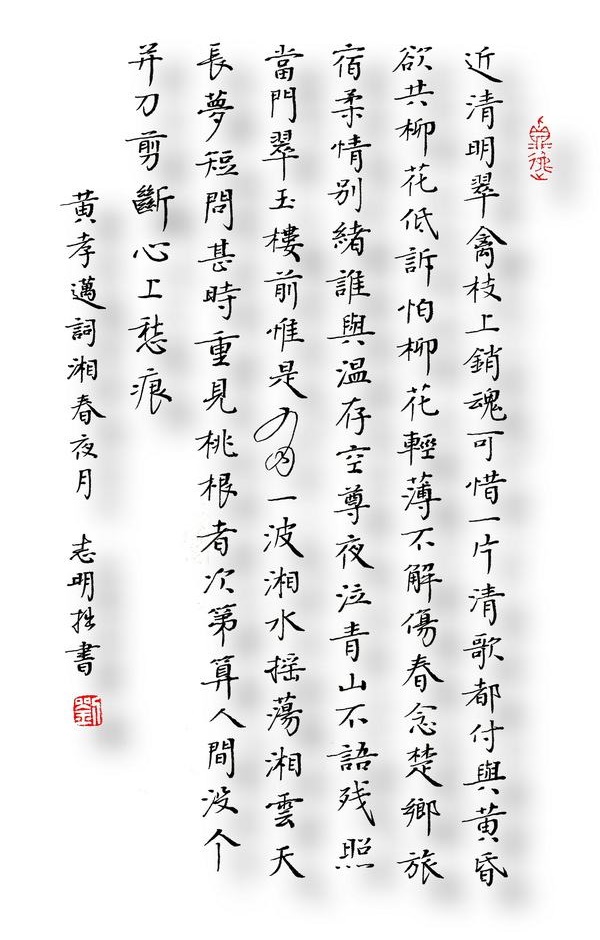 近清明翠禽枝上銷魂可惜一片清歌都付與黃昏
欲共柳花低訴怕柳花輕薄不解傷春念楚鄉旅
宿柔情別緒誰與温存空尊夜泣青山不語残照
當門翠玉樓前惟是有一波湘水摇蕩湘雲天
長夢短問甚時重見桃根者次第算人間没个
并刀剪斷心上愁痕
黃孝邁詞湘春夜月 志明拙書
劉